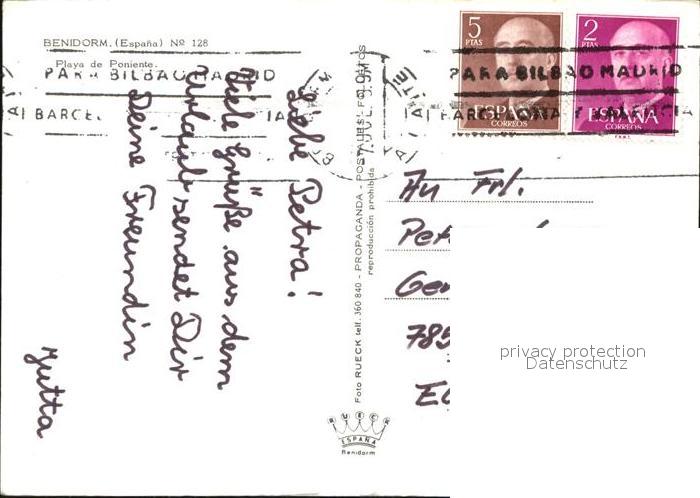 BENIDORM. (España) Nº 128
Playa de Poniente.
PARA BILBAO MADRID
BARCE
Liebe Petra!
Viele Grüße aus dem
Urlaub sendet Dir
Deine Freundin
Jutta
Foto RUECK telf. 360 840 - PROPAGANDA - POSTALES - FOLLETOS
reproducción prohibida
RUECK
ESPAÑA
Benidorm
5
PTAS
ESPAÑA
CORREOS
2
PTAS
ESPAÑA
CORREOS
PARA BILBAO MADRID
An Frl.
Pet
Ge
785
privacy protection
Datenschutz